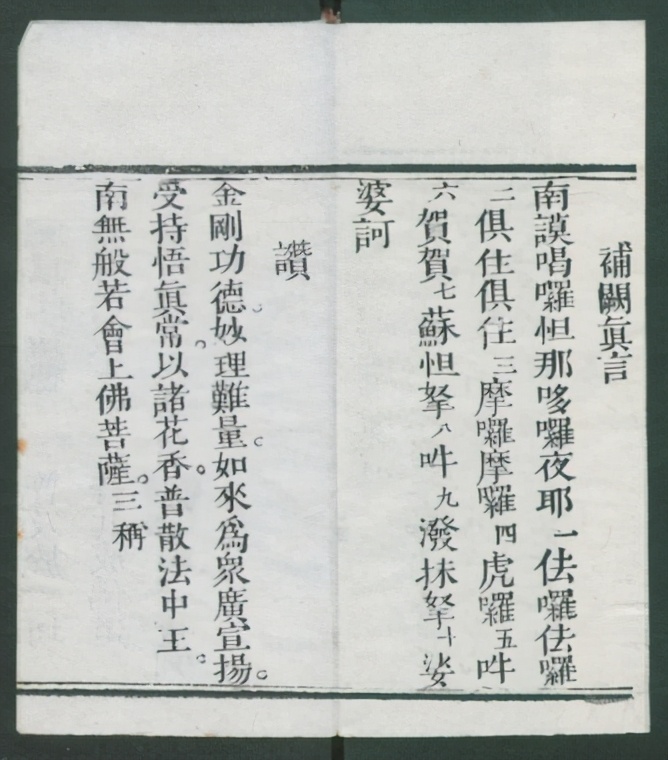 補闕眞言
南謨喝囉怛那哆囉夜耶一佉囉佉囉
二俱住俱住三摩囉摩囉四虎囉五吽
六賀賀七蘇怛拏八吽九潑抹拏十娑
婆訶
讚
金剛功德。妙理難量。如來爲衆廣宣揚。
受持悟眞常。以諸花香。普散法中王。
南無般若會上佛菩薩。三稱